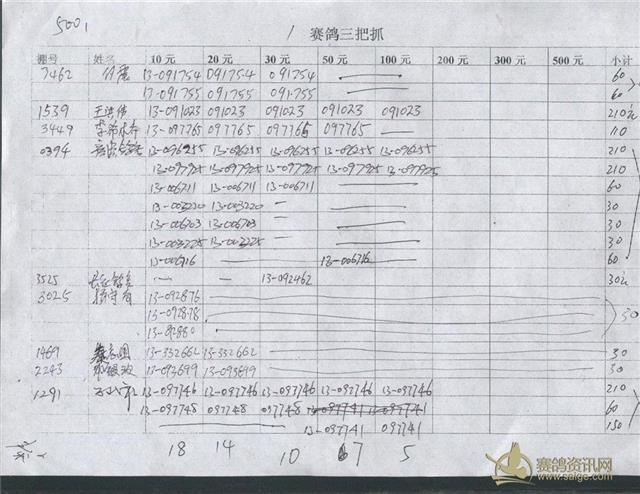 5001
1 赛鸽三把抓
棚号 姓名 10元 20元 30元 50元 100元 200元 300元 500元 小计
3462 13-091754 091754 091754 60
13-091755 091755 091755 60
1539 13-091023 091023 091023 091023 091023 210元
3449 13-097765 097765 097765 097765 110
0394 13-096255 13-096255 13-096255 13-096255 13-096255 210
13-097925 13-097925 13-097925 13-097925 13-097925 210
13-006711 13-006711 13-006711 60
13-003220 13-003220 — 30
13-006703 13-006703 — 30
13-003225 13-003225 — 30
13-006716 — 13-006716 60
3525 — — 13-092462 30元
3025 杨守有 13-092876
13-092878 30
13-92880
1469 13-332662 13-332662 30
2243 13-093699 13-093699 30
1291 13-097746 13-097746 13-097746 13-097746 13-097746 210
13-097748 097748 097748 13-097741 13-097741 60
13-097741 097741 150
18 14 10 7 5
赛鸽资讯网
www.saige.com